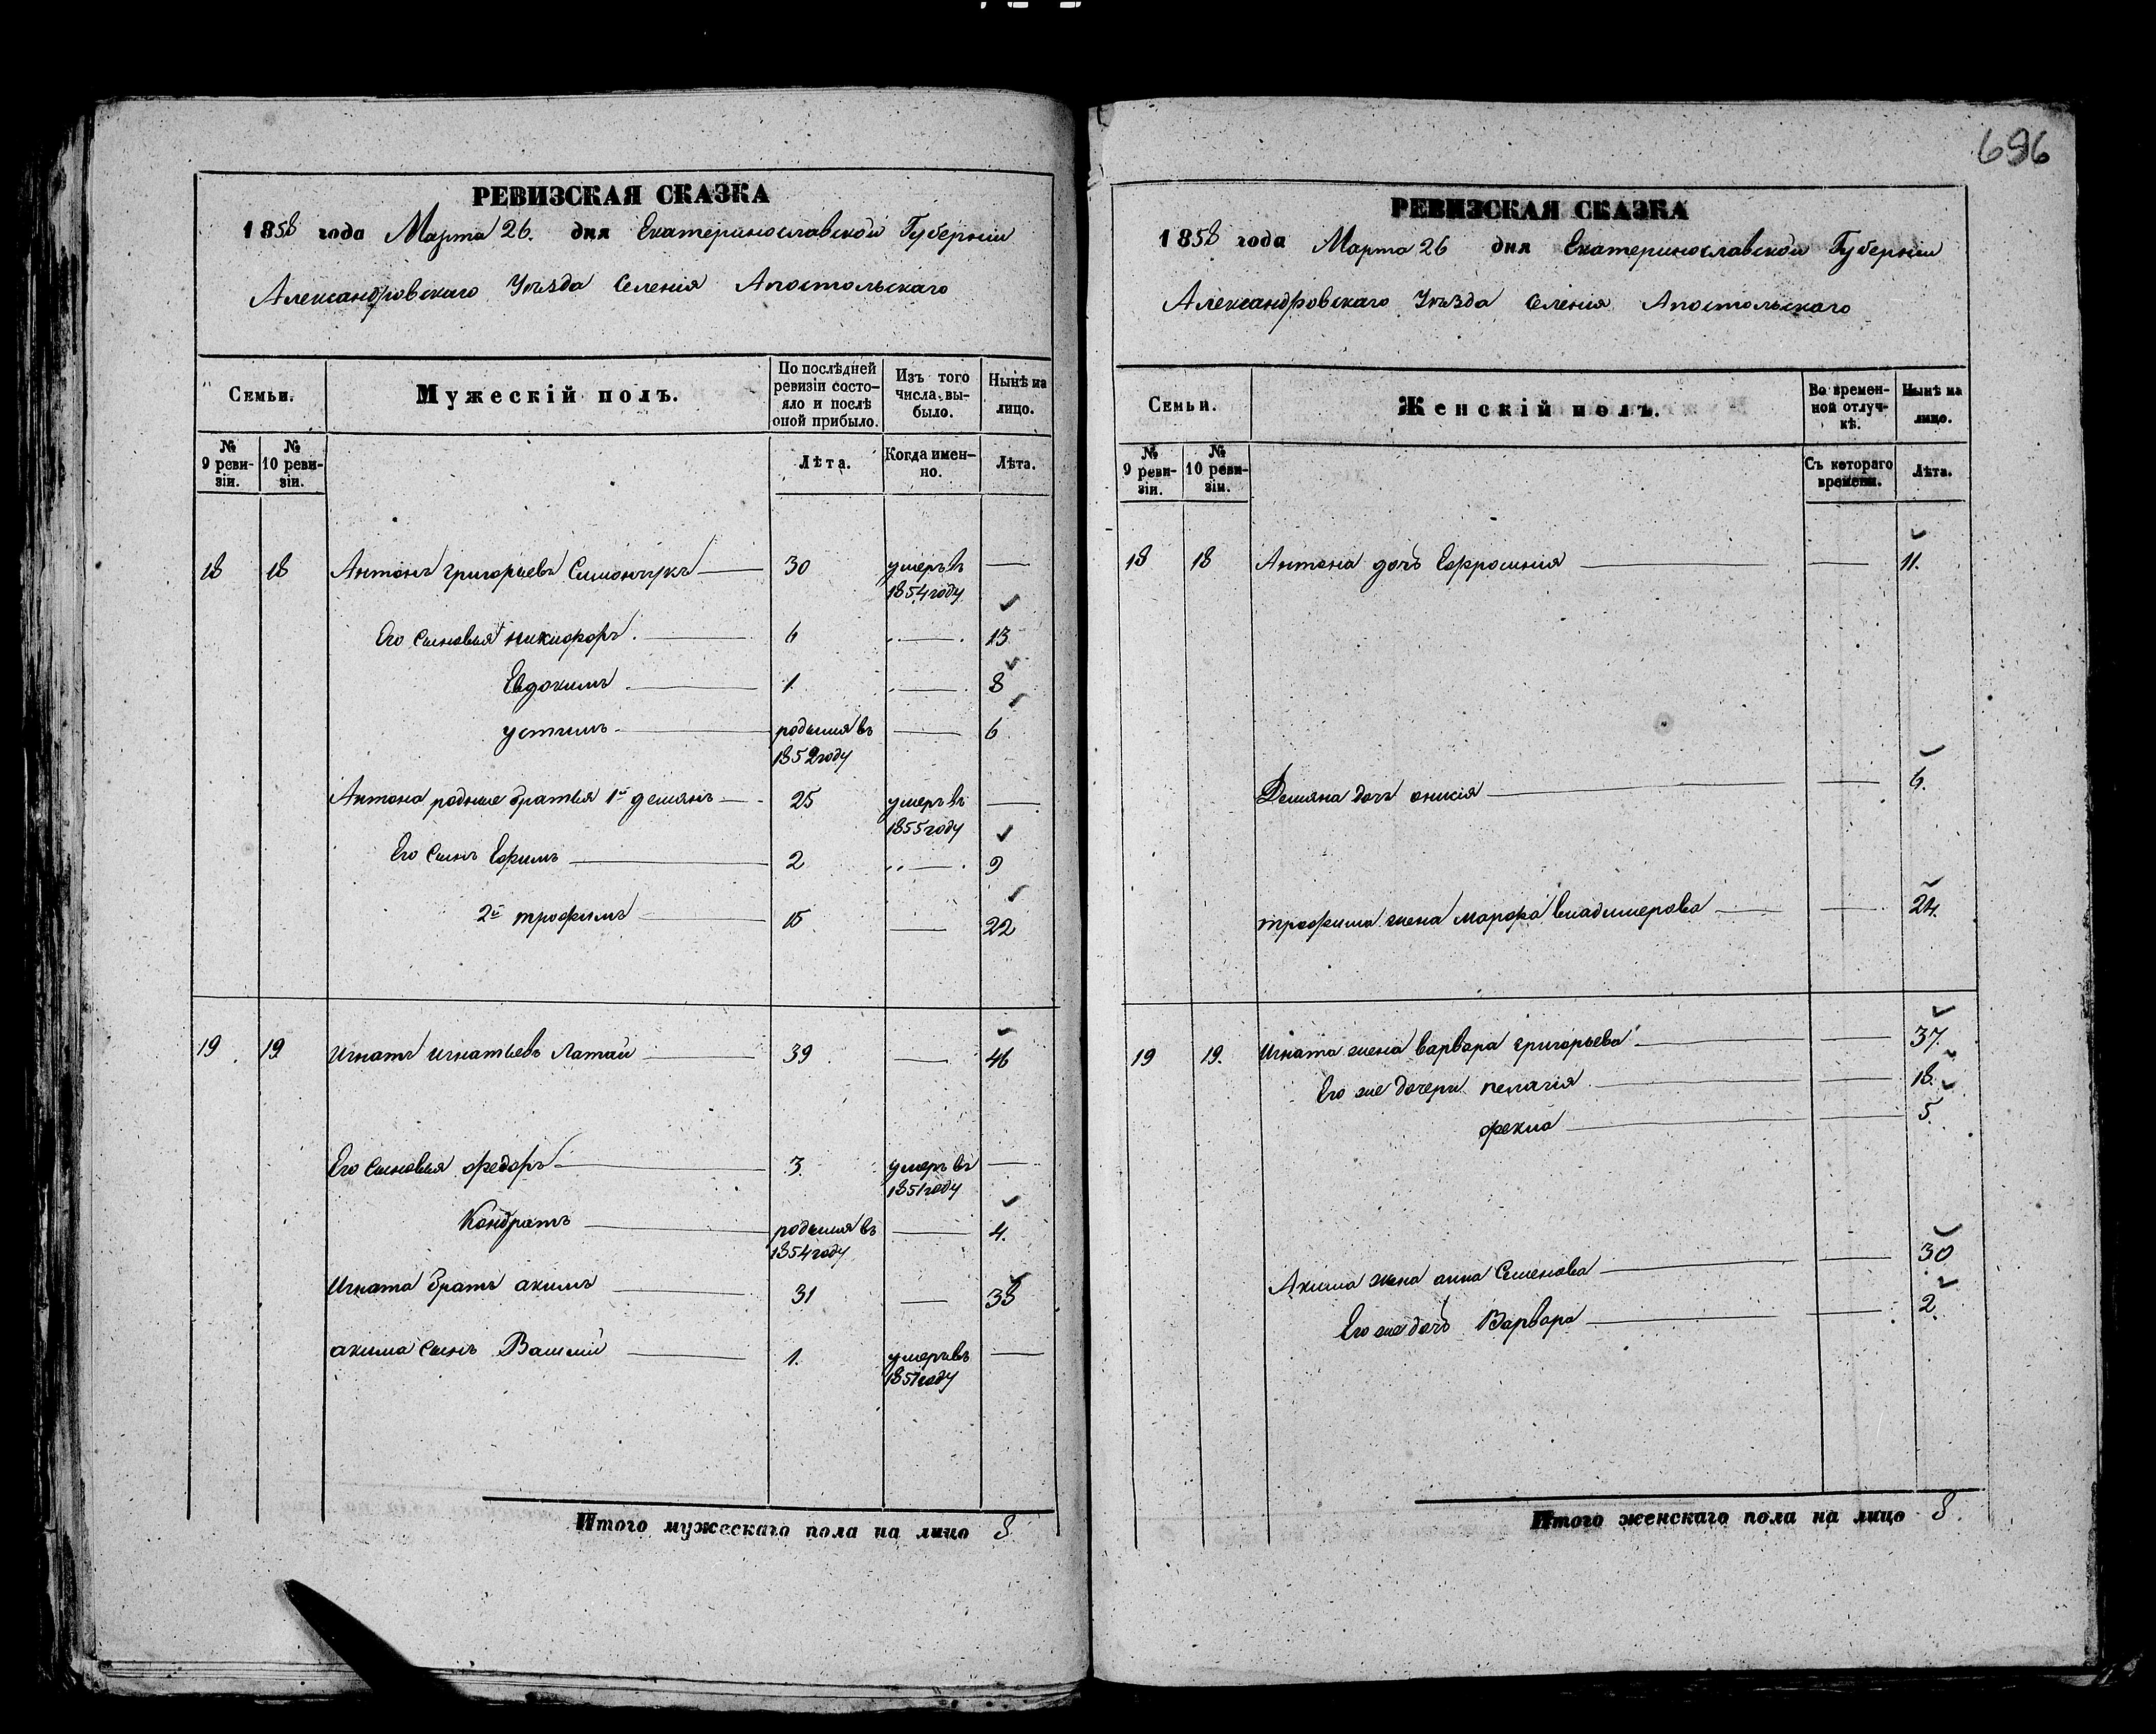 696
РЕВИЗСКАЯ СКАЗКА
1858 года Марта 26. дня Екатеринославской Губерніи
Александровскаго Уѣзда Селенія Апостольскаго
Семьи.
Мужескій полъ.
По послѣдней ревизіи состо-
яло и послѣ оной прибыло.
Изъ того числа вы-
было.
Нынѣ на лицо.
№ 9 реви-
зіи.
№ 10 реви-
зіи.
Лѣта.
Когда имен-
но.
Лѣта.
18 18 Антонъ григорьевъ Симончукъ — 30 умеръ въ 1854 году —
Его сыновья никифоръ. — 6 — 13
Евдокимъ — 1. — 8
устимъ — родился въ 1852 году — 6
Антона родные братья 1й демянъ — 25 умеръ въ 1855 году —
Его сынъ Ефимъ — 2 — 9
2й трофимъ — 15 — 22
19 19 Игнатъ игнатьевъ Латай — 39 — 46
Его сыновья федоръ — 3. умеръ въ 1851 году —
Кондратъ — родился въ 1854 году — 4.
Игната братъ акимъ — 31 — 38
акима сынъ Василий — 1. умеръ въ 1851 году —
Итого мужескаго пола на лицо 8
РЕВИЗСКАЯ СКАЗКА
1858 года Марта 26 дня Екатеринославской Губерніи
Александровскаго Уѣзда Селенія Апостольскаго
Семьи.
Женскій полъ.
Во времен-
ной отлуч-
кѣ.
Нынѣ на лицо.
№ 9 реви-
зіи.
№ 10 реви-
зіи.
Съ котораго времени.
Лѣта.
18 18 Антона дочь Ефросинія — — 11.
Демяна дочь онисія — — 6.
трофима жена Марфа владимерова — — 24.
19 19. Игната жена варвара григорьева — — 37.
Его же дочери пелагія — — 18.
фекла — — 5.
Акима жена анна Семенова — — 30
Его же дочь Варвара — — 2.
Итого женскаго пола на лицо 8.